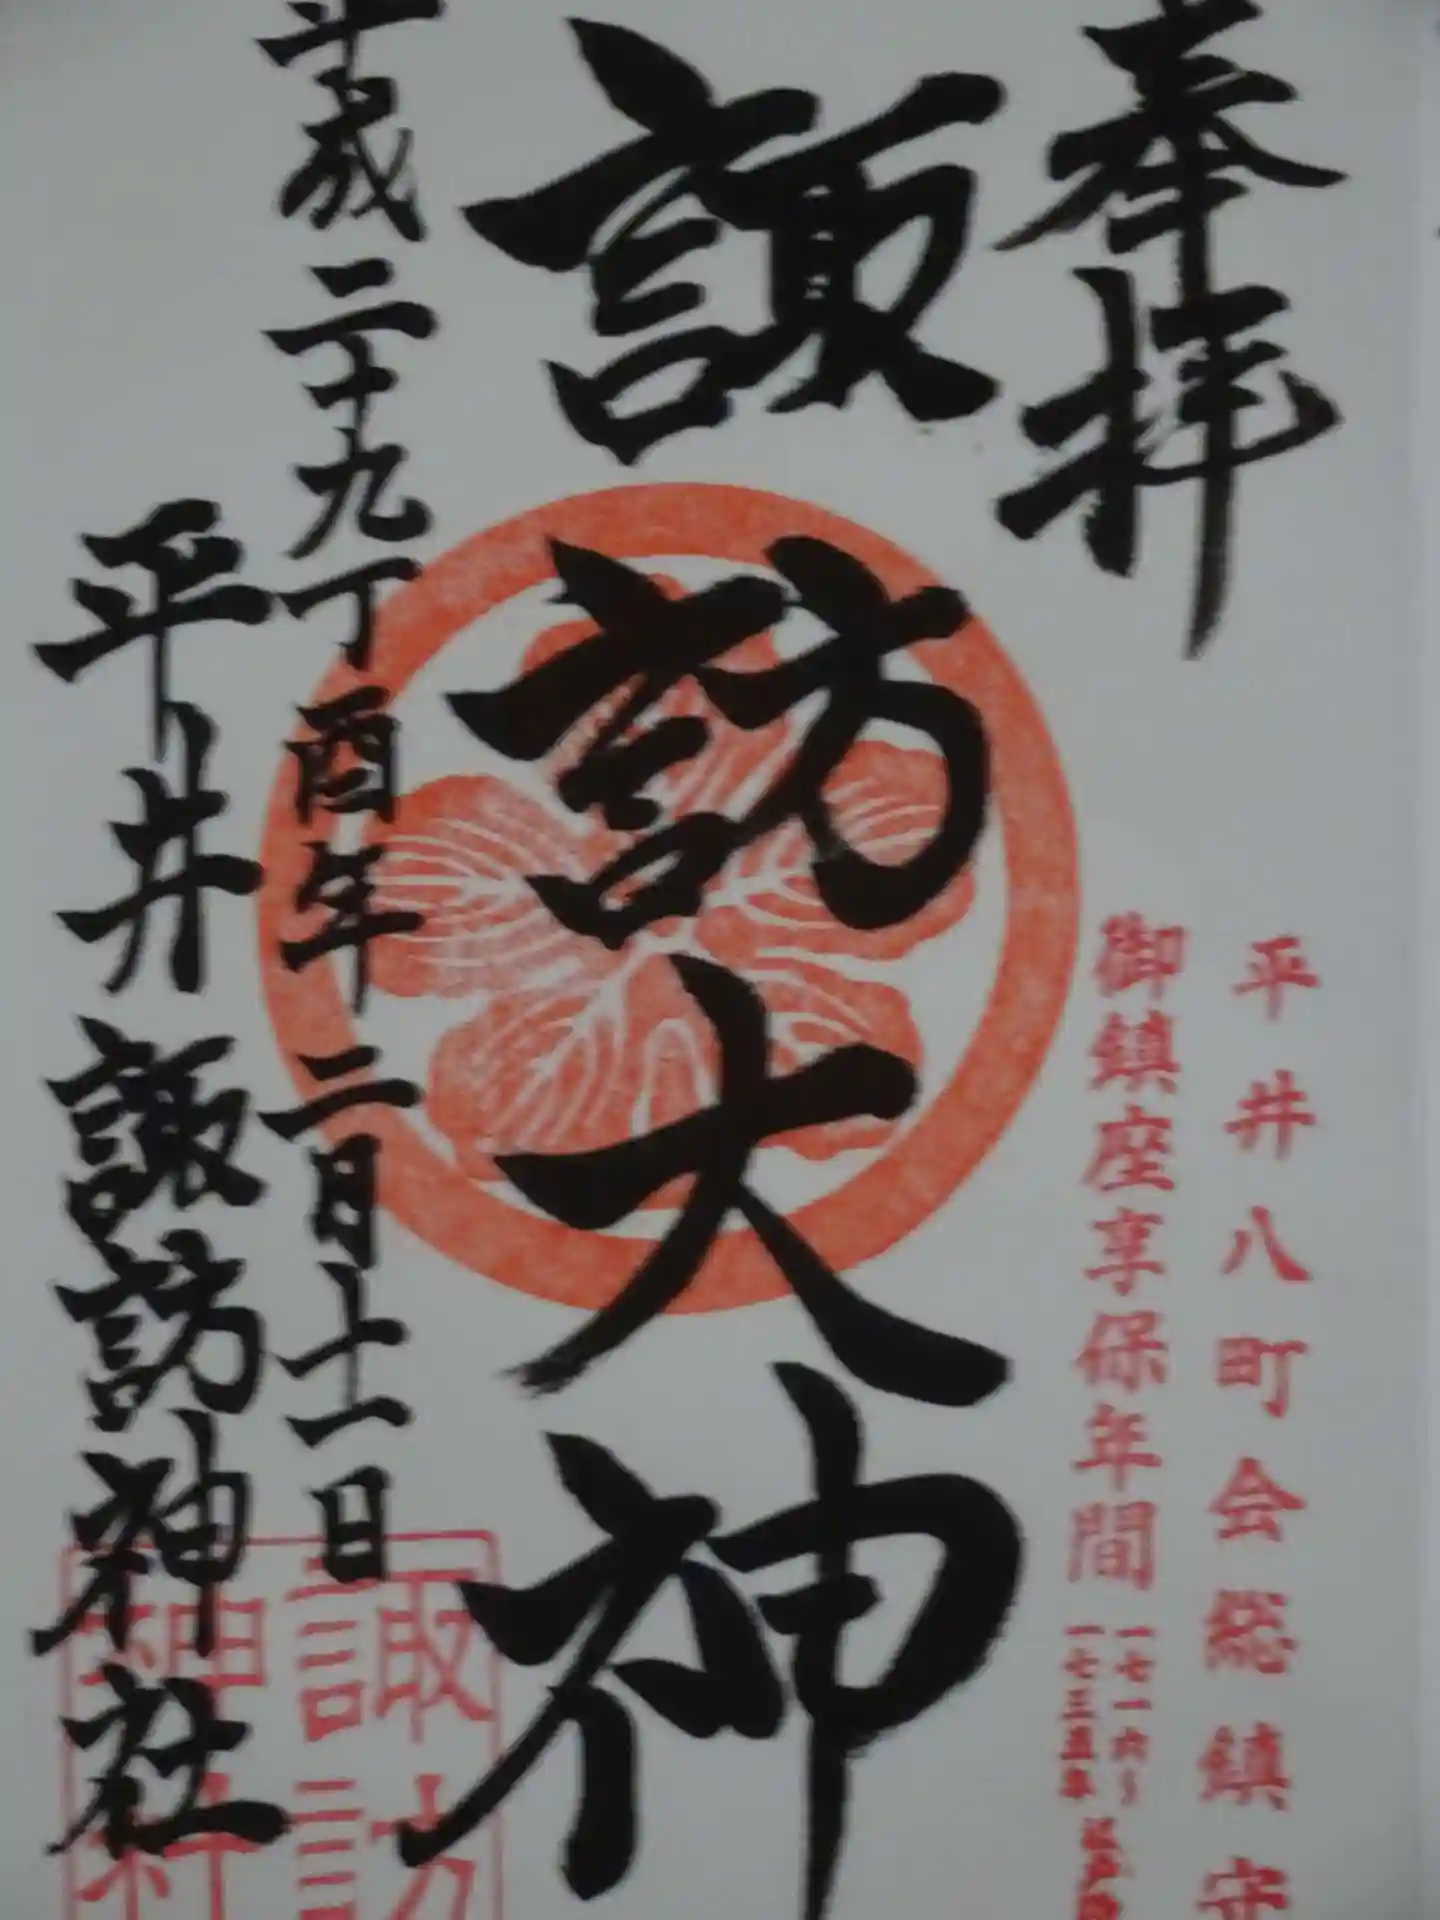 奉拝
平井八町会総鎮守
御鎮座享保年間
一七一六～
一七三五年
諏訪大神
平成二十九丁酉年二月十一日
平井諏訪神社
諏訪
神社